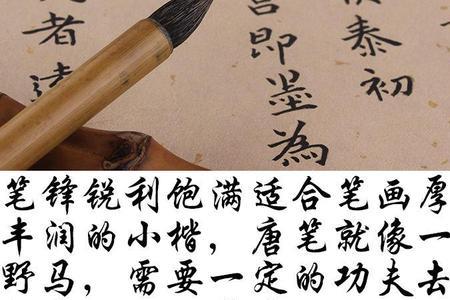 泰初
即墨為
者遠
笔锋锐利饱满适合笔画厚
丰润的小楷，唐笔就像一
野马，需要一定的功夫去